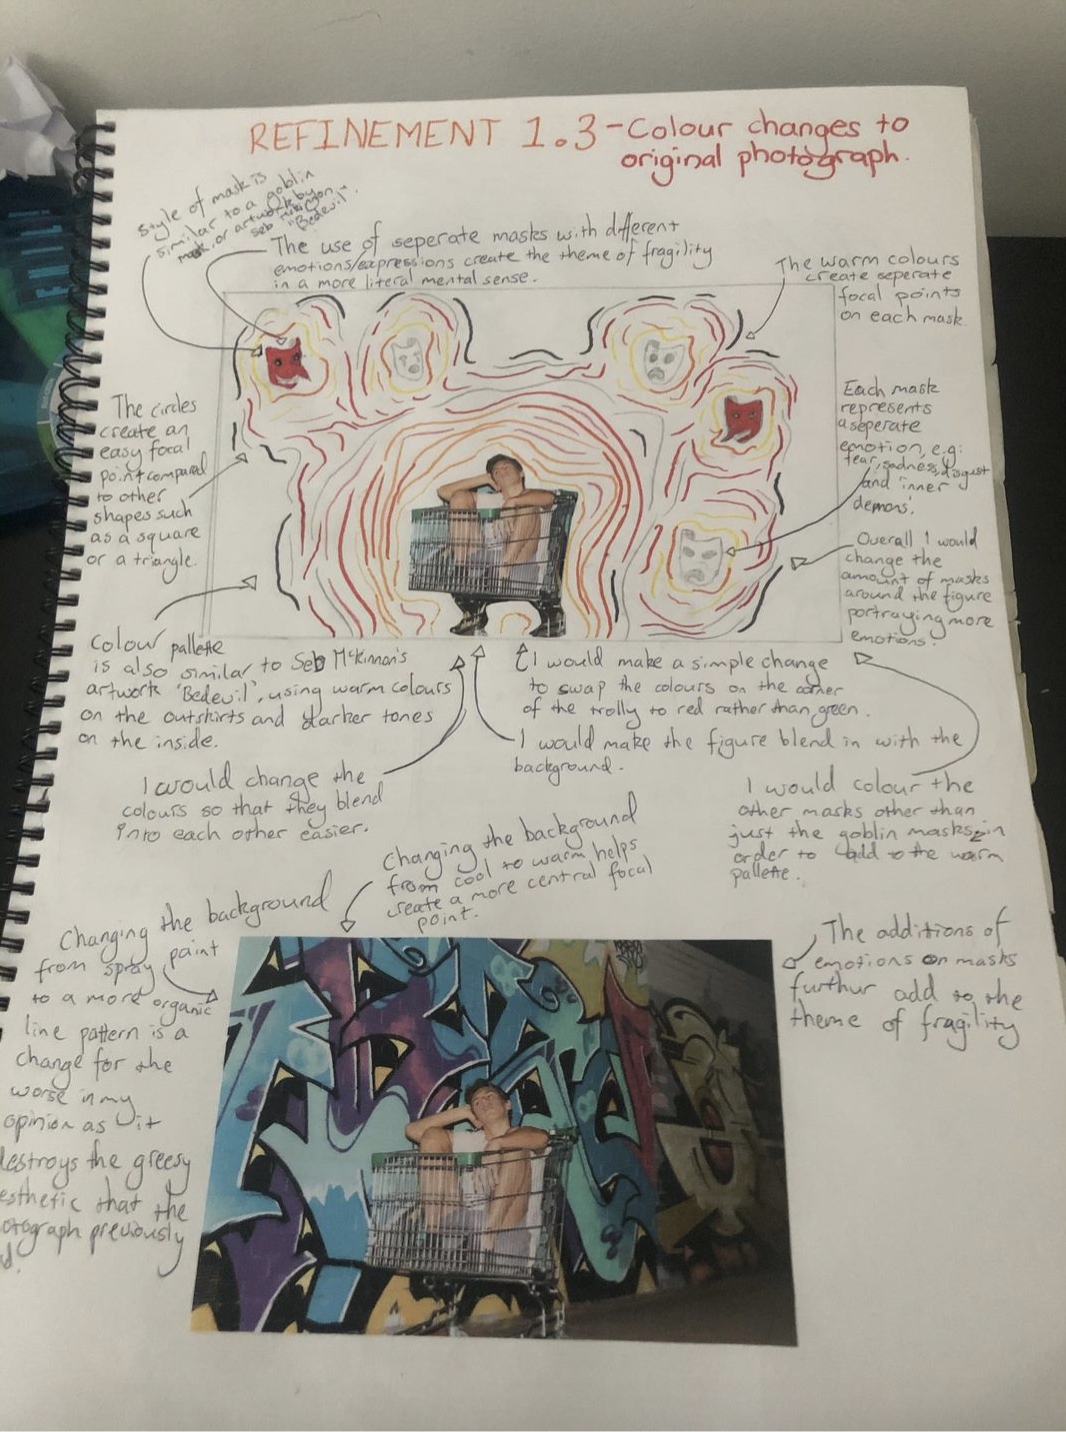 REFINEMENT 1.3 - Colour changes to
original photograph.
Style of mask is
similar to a goblin
mask, or artwork by
"Bedevil".
The use of seperate masks with different
emotions/expressions create the theme of fragility
in a more literal mental sense.
The warm colours
create seperate
focal points
on each mask.
The circles
create an
easy focal
point compared
to other
shapes such
as a square
or a triangle.
Each mask
represents
a seperate
emotion, e.g:
fear, sadness, disgust
and inner
demons.
Overall I would
change the
amount of masks
around the figure
portraying more
emotions.
Colour pallette
is also similar to Seb McKinnon's
artwork 'Bedevil', using warm colours
on the outskirts and darker tones
on the inside.
I would make a simple change
to swap the colours on the corner
of the trolly to red rather than green.
I would make the figure blend in with the
background.
I would change the
colours so that they blend
into each other easier.
I would colour the
other masks other than
just the goblin masks in
order to add to the warm
pallette.
Changing the background
from cool to warm helps
create a more central focal
point.
Changing the background
from spray paint
to a more organic
line pattern is a
change for the
worse in my
opinion as it
destroys the
esthetic that the
otograph previously
The additions of
emotions on masks
furthur add to the
theme of fragility